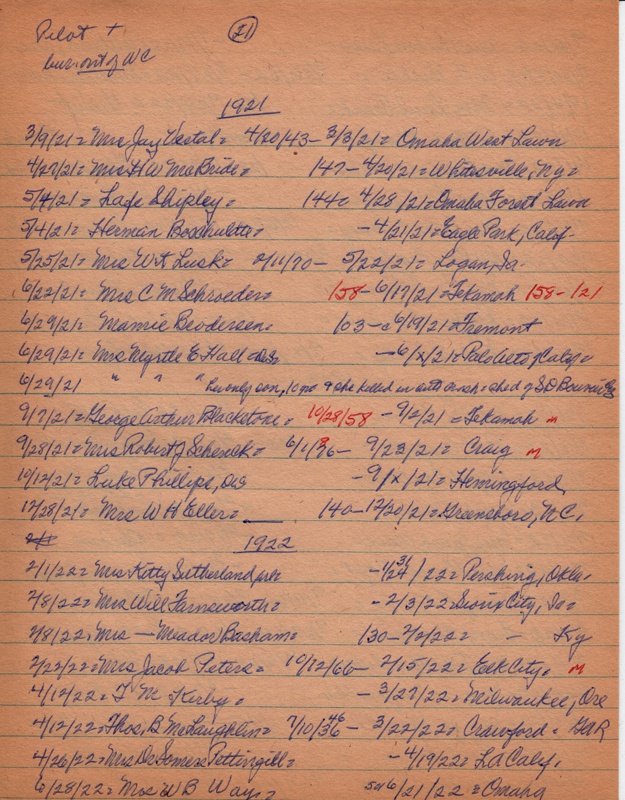 Pilot +
bur. out of WC
21
1921
3/9/21 = Mrs Jay Vestal = 4/20/43 – 3/3/21 = Omaha West Lawn
4/27/21 = Mrs H W McBride = 147 – 4/20/21 = Whitesville, Ny =
5/4/21 = Lafe Shipley = 144 = 4/28/21 = Omaha Forest Lawn
5/4/21 = Herman = – 4/21/21 = Eagle Park, Calif.
5/25/21 = Mrs Wt Lusk = 2/11/70 – 5/22/21 = Logan, Ia.
6/22/21 = Mrs C M Schroeder = 158 – 6/17/21 = Tekamah 158 – 121
6/29/21 = Mamie Brodersen = 103 – 6/19/21 = Fremont
6/29/21 = Mrs Myrtle E Hall – 6/x/21 = Palo Alto, Calif =
6/29/21 " " " her only son, 10 mo & she killed in auto crash = ched of S D
9/7/21 = George Arthur Blackstone = 10/28/58 – 9/2/21 = Tekamah m
9/28/21 = Mrs Robert J Schenck = 6/1/36 – 9/23/21 = Craig m
10/12/21 = Luke Phillips, – 9/x/21 = Hemingford,
12/28/21 = Mrs W H Eller = 140 – 12/20/21 = Greensboro, N.C.
1922
2/1/22 = Mrs Kitty Sutherland – 1/24/22 = Pershing, Okla.
31
2/8/22 = Mrs Will Farnsworth = – 2/3/22 = Sioux City, Ia =
2/8/22 = Mrs — Meador Basham = 130 – 2/2/22 = – Ky
2/22/22 = Mrs Jacob Peters = 10/12/66 – 2/15/22 = Elk City. m
4/12/22 = T M Kirby = – 3/27/22 = Milwaukee, Ore
4/12/22 = Thos, B McLaughlin = 7/10/36 – 3/22/22 = Crawford = GAR
46
4/26/22 = Mrs Dr Somers Pettingill = – 4/19/22 = LA Calif.
6/28/22 = Mrs W B Ways = 6/21/22 = Omaha